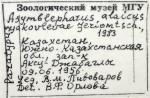 Зоологический музей МГУ
Asymblepharus alaicus
yakovlevae Jeriomtsch.,
1983
Казахстан,
Южно-Казахстанская
зап-к
Аксу-Джабаглы
09.06.1956
leg. А.М. Пивоваров
Det. В.Ф. Орлова